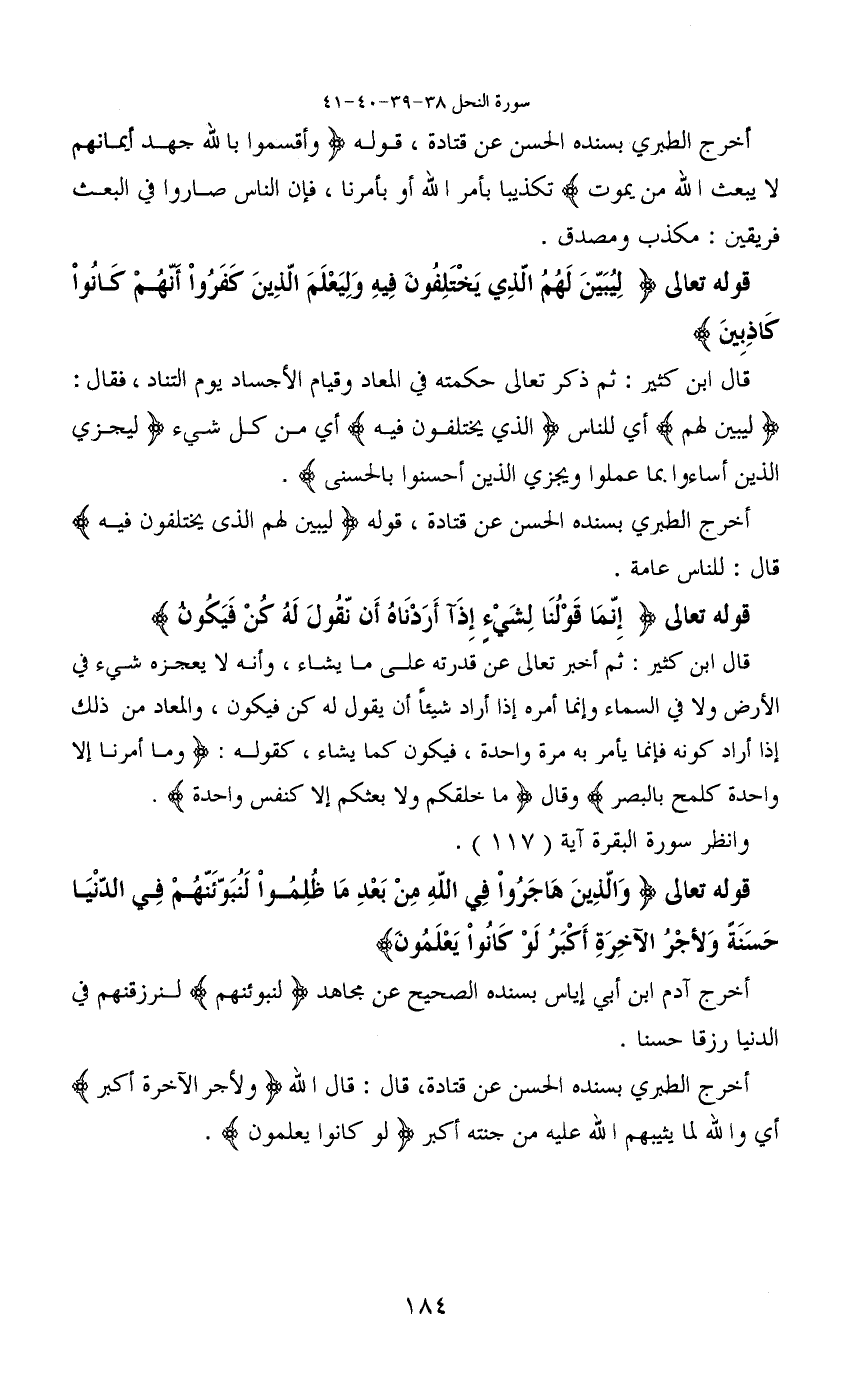 سورة النحل ٣٨-٣٩-٤٠-٤١
أخرج الطبري بسنده الحسن عن قتادة ، قوله ﴿ وأقسموا بالله جهد أيمانهم
لا يبعث الله من يموت ﴾ تكذيبا بأمر الله أو بأمرنا ، فإن الناس صاروا في البعث
فريقين : مكذب ومصدق .
قوله تعالى ﴿ لِيُبَيِّنَ لَهُمُ الَّذِي يَخْتَلِفُونَ فِيهِ وَلِيَعْلَمَ الَّذِينَ كَفَرُواْ أَنَّهُمْ كَانُواْ
كَاذِبِينَ ﴾
قال ابن كثير : ثم ذكر تعالى حكمته في المعاد وقيام الأجساد يوم التناد ، فقال :
﴿ ليبين لهم ﴾ أي للناس ﴿ الذي يختلفون فيه ﴾ أي من كل شيء ﴿ ليجزي
الذين أساءوا بما عملوا ويجزي الذين أحسنوا بالحسنى ﴾ .
أخرج الطبري بسنده الحسن عن قتادة ، قوله ﴿ ليبين لهم الذى يختلفون فيه ﴾
قال : للناس عامة .
قوله تعالى ﴿ إِنَّمَا قَوْلُنَا لِشَيْءٍ إِذَآ أَرَدْنَاهُ أَن نَّقُولَ لَهُ كُنْ فَيَكُونُ ﴾
قال ابن كثير : ثم أخبر تعالى عن قدرته على ما يشاء ، وأنه لا يعجزه شيء في
الأرض ولا في السماء وإنما أمره إذا أراد شيئاً أن يقول له كن فيكون ، والمعاد من ذلك
إذا أراد كونه فإنما يأمر به مرة واحدة ، فيكون كما يشاء ، كقوله : ﴿ وما أمرنا إلا
واحدة كلمح بالبصر ﴾ وقال ﴿ ما خلقكم ولا بعثكم إلا كنفس واحدة ﴾ .
وانظر سورة البقرة آية ( ١١٧ ) .
قوله تعالى ﴿ وَالَّذِينَ هَاجَرُواْ فِي اللَّهِ مِنْ بَعْدِ مَا ظُلِمُواْ لَنُبَوِّئَنَّهُمْ فِي الدُّنْيَا
حَسَنَةً وَلأَجْرُ الآخِرَةِ أَكْبَرُ لَوْ كَانُواْ يَعْلَمُونَ﴾
أخرج آدم ابن أبي إياس بسنده الصحيح عن مجاهد ﴿ لنبوئنهم ﴾ لنرزقنهم في
الدنيا رزقا حسنا .
أخرج الطبري بسنده الحسن عن قتادة، قال : قال الله ﴿ ولأجر الآخرة أكبر ﴾
أي والله لما يثيبهم الله عليه من جنته أكبر ﴿ لو كانوا يعلمون ﴾ .
١٨٤